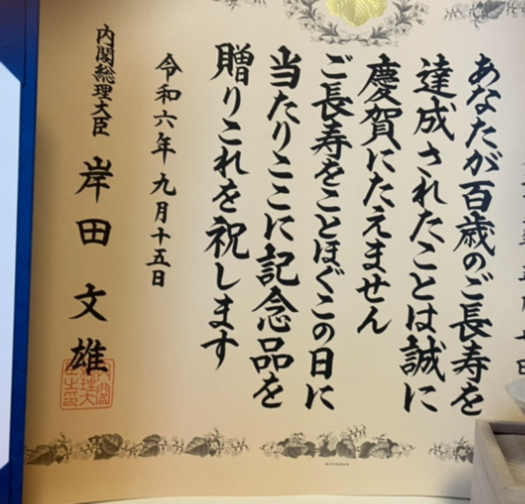 あなたが百歳のご長寿を
達成されたことは誠に
慶賀にたえません
ご長寿をことほぐこの日に
当たりここに記念品を
贈りこれを祝します
令和六年九月十五日
内閣総理大臣 岸田文雄